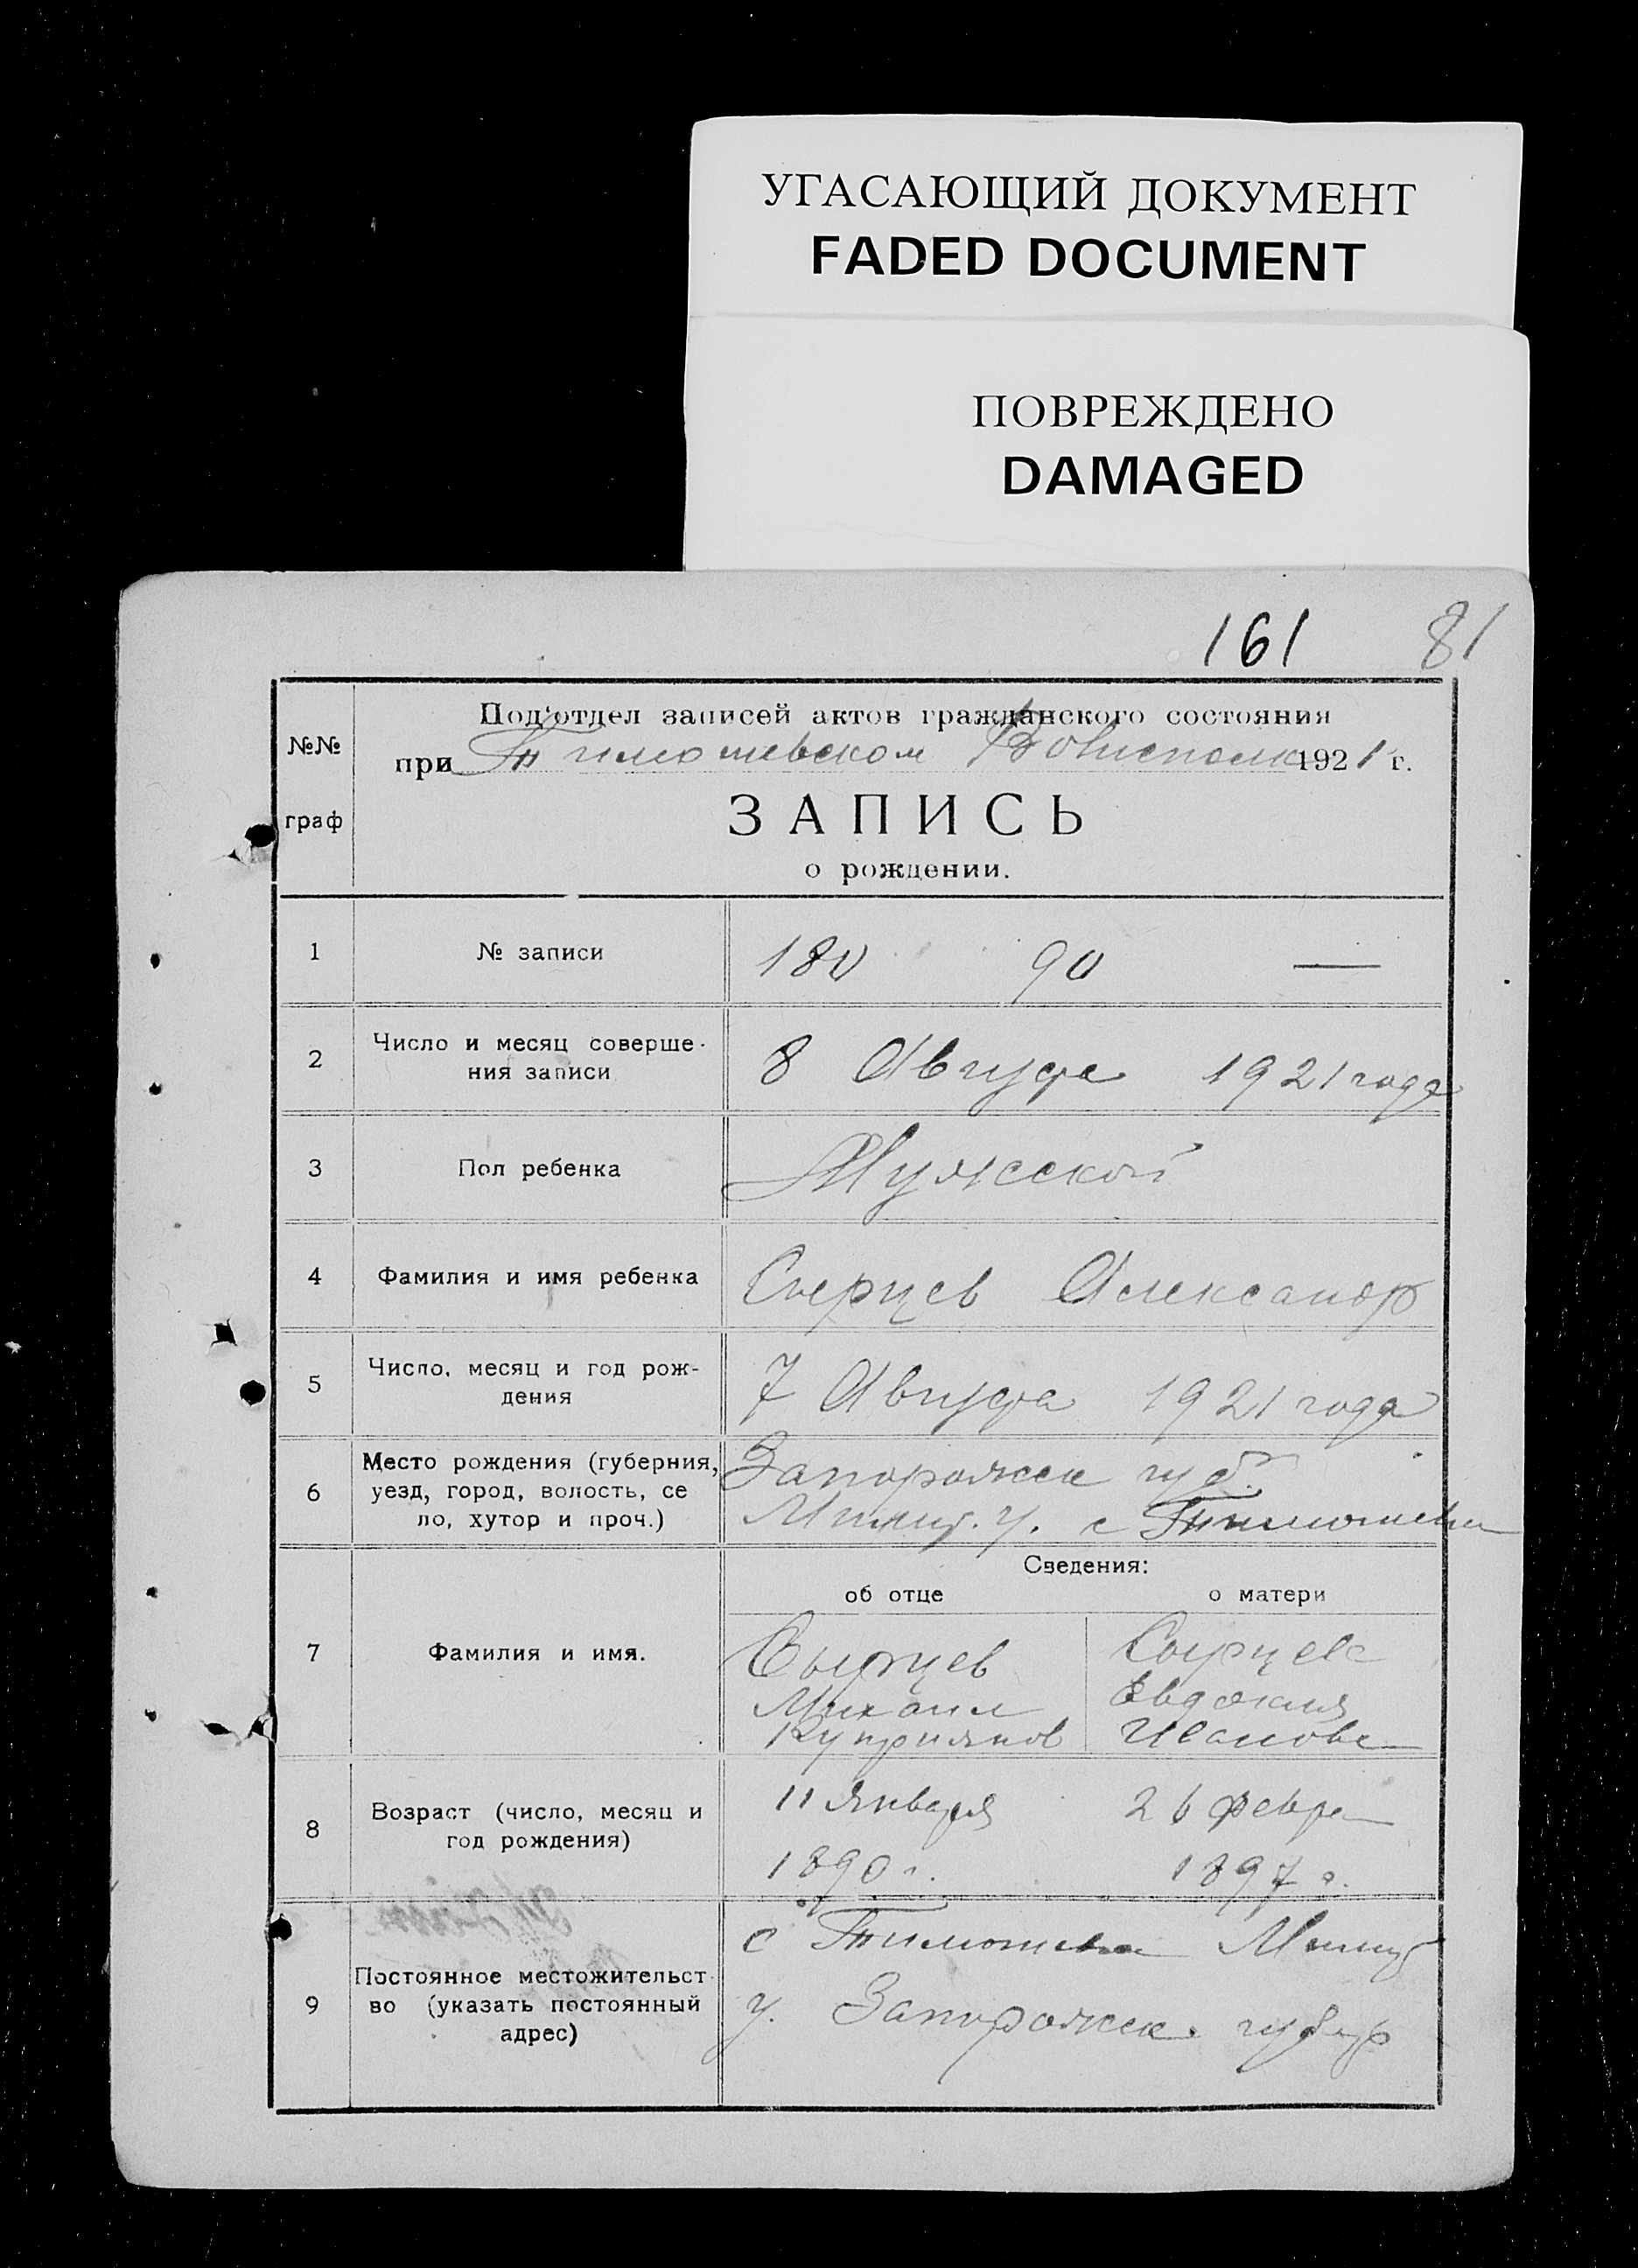 УГАСАЮЩИЙ ДОКУМЕНТ
FADED DOCUMENT
ПОВРЕЖДЕНО
DAMAGED
161 81
№№ граф
Под'отдел записей актов гражданского состояния
при Тимошевском Волисполк 1921 г.
ЗАПИСЬ
о рождении.
1 № записи 180 90 —
2 Число и месяц соверше-
ния записи 8 Августа 1921 года
3 Пол ребенка Мужской
4 Фамилия и имя ребенка Сырцев Александр
5 Число, месяц и год рож-
дения 7 Августа 1921 года
6 Место рождения (губерния,
уезд, город, волость, се
ло, хутор и проч.)
Запорожск губ.
у. с Тимошевка
Сведения:
об отце о матери
7 Фамилия и имя.
Сырцев Сырцева
Михаил Евдокия
Куприянов Иванова
8 Возраст (число, месяц и
год рождения)
11 Января 26 Февра
1890 г. 1897 г.
9 Постоянное местожительст
во (указать постоянный
адрес)
с Тимошевка
у. Запорожск. губер